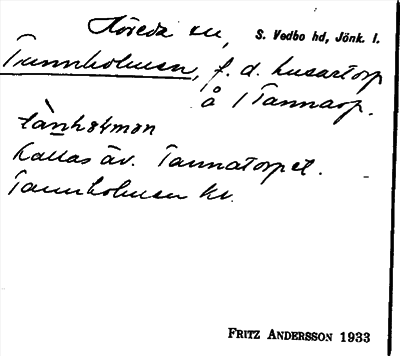 Höreda sn, S. Vedbo hd, Jönk. l.
Tannholmen, f. d. husartorp
å 1 Tannarp.
tànhalman
Kallas äv. Tannatorpet.
Tannholmen kv.
FRITZ ANDERSSON 1933